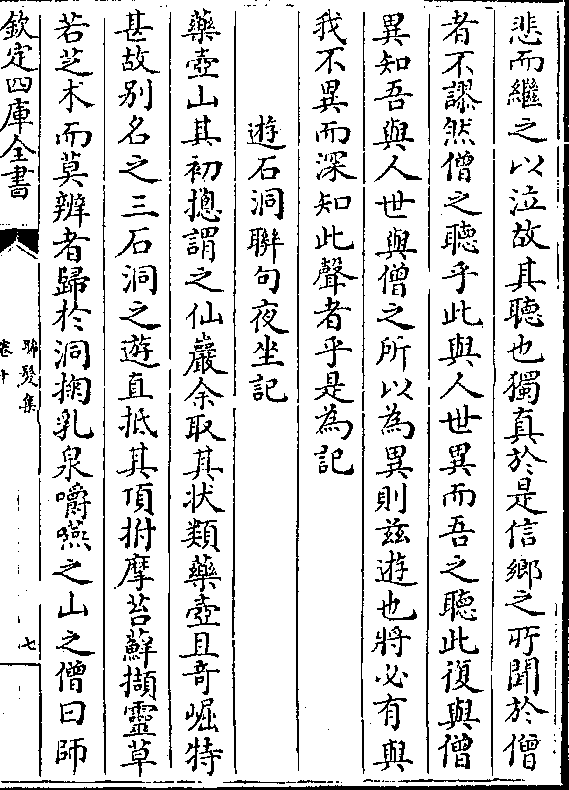 悲而繼之以泣故其聽也獨真於是信鄉之所聞於僧
者不謬然僧之聽乎此與人世異而吾之聽此復與僧
異知吾與人世與僧之所以為異則茲遊也將必有與
我不異而深知此聲者乎是為記
遊石洞聯句夜坐記
藥壺山其初摠謂之仙巖余取其狀類藥壺且竒崛特
甚故别名之三石洞之遊直抵其頂拊摩苔蘚擷靈草
若芝术而莫辨者歸於洞掬乳泉嚼嚥之山之僧曰師
欽定四庫全書
晞髮集
卷十
七